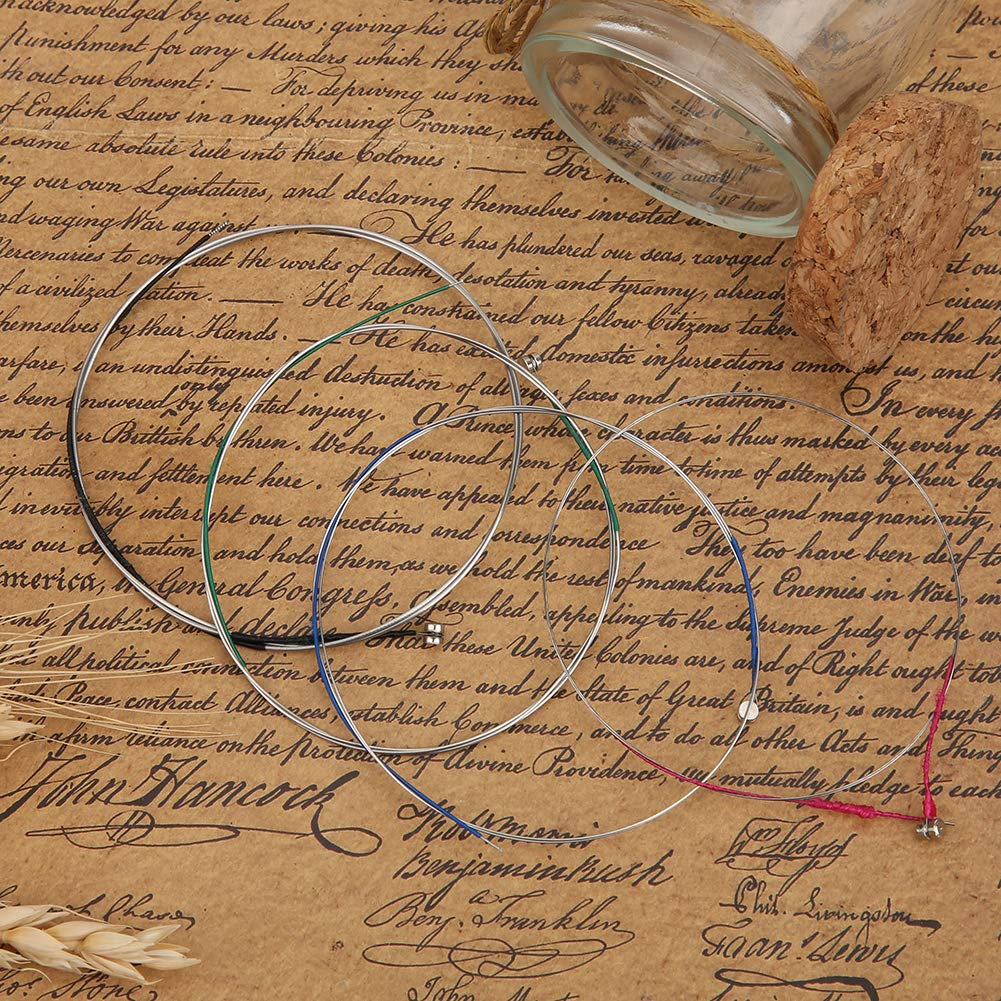 acknowledged by our laws; giving his As
Punishment for any Murders which they sh
ithout our Consent: — For depriving us in ma
of English Laws in a neighbouring Province, esta
same absolute rule into these Colonies: — For
ng our own Legistatures, and declaring themselves invested
nd waging War against He has plundered our seas, ravaged
ercenaries to the works of death desotation and tyranny, already circum
of a civilized tation. — He has constrained our fellow Citizens taken
hemselves by their Hands. — He has domestic insurrections amongst us, and
arfare, is an undistinguished destruction of all ages sexes and conditions. In every
been answered by only repeated injury. A Prince whose character is thus marked by every
ns to our Brittish brethren. We have warned them from time to time of attempts by their
igration and fettlement here. We have appeared to their native justice and magnanimity,
d inevitably interrupt our connections and correspondence They too have been deaf to
ces our Separation and hold them, as we hold the rest of mankind, Enemies in War, in
merica, in General Congress, Assembled, appealing to the Supreme Judge of the
and declare That these United Colonies are, and of Right ought
at all political connection between them and the State of Great Britain, is and ought
de Peace, contract Alliances, establish Commerce, and to do all other Acts and Things
a firm reliance on the Protection of Divine Providence, we mutually pledge to each
John Hancock
Benjamin Rush
Benj. Franklin
Phil. Livingston
Lewis
Chase
Stone
John